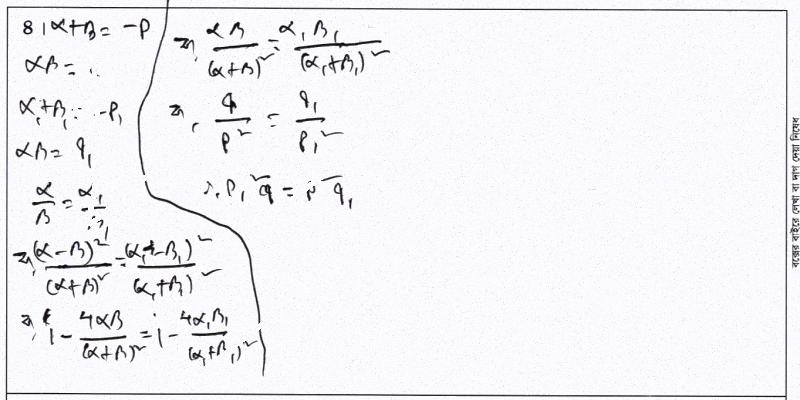 ৪। α+β = -P
αβ = 
α₁+β₁ = -P₁
αβ = q₁
α/β = α₁/
বা, (α-β)²/(α+β)² = (α₁-β₁)²/(α₁+β₁)²
বা, 1 - 4αβ/(α+β)² = 1 - 4α₁β₁/(α₁+β₁)²
বা, αβ/(α+β)² = α₁β₁/(α₁+β₁)²
বা, q/P² = q₁/P₁²
∴ P₁²q = P²q₁
বক্সের বাইরে লেখা বা দাগ দেয়া নিষেধ